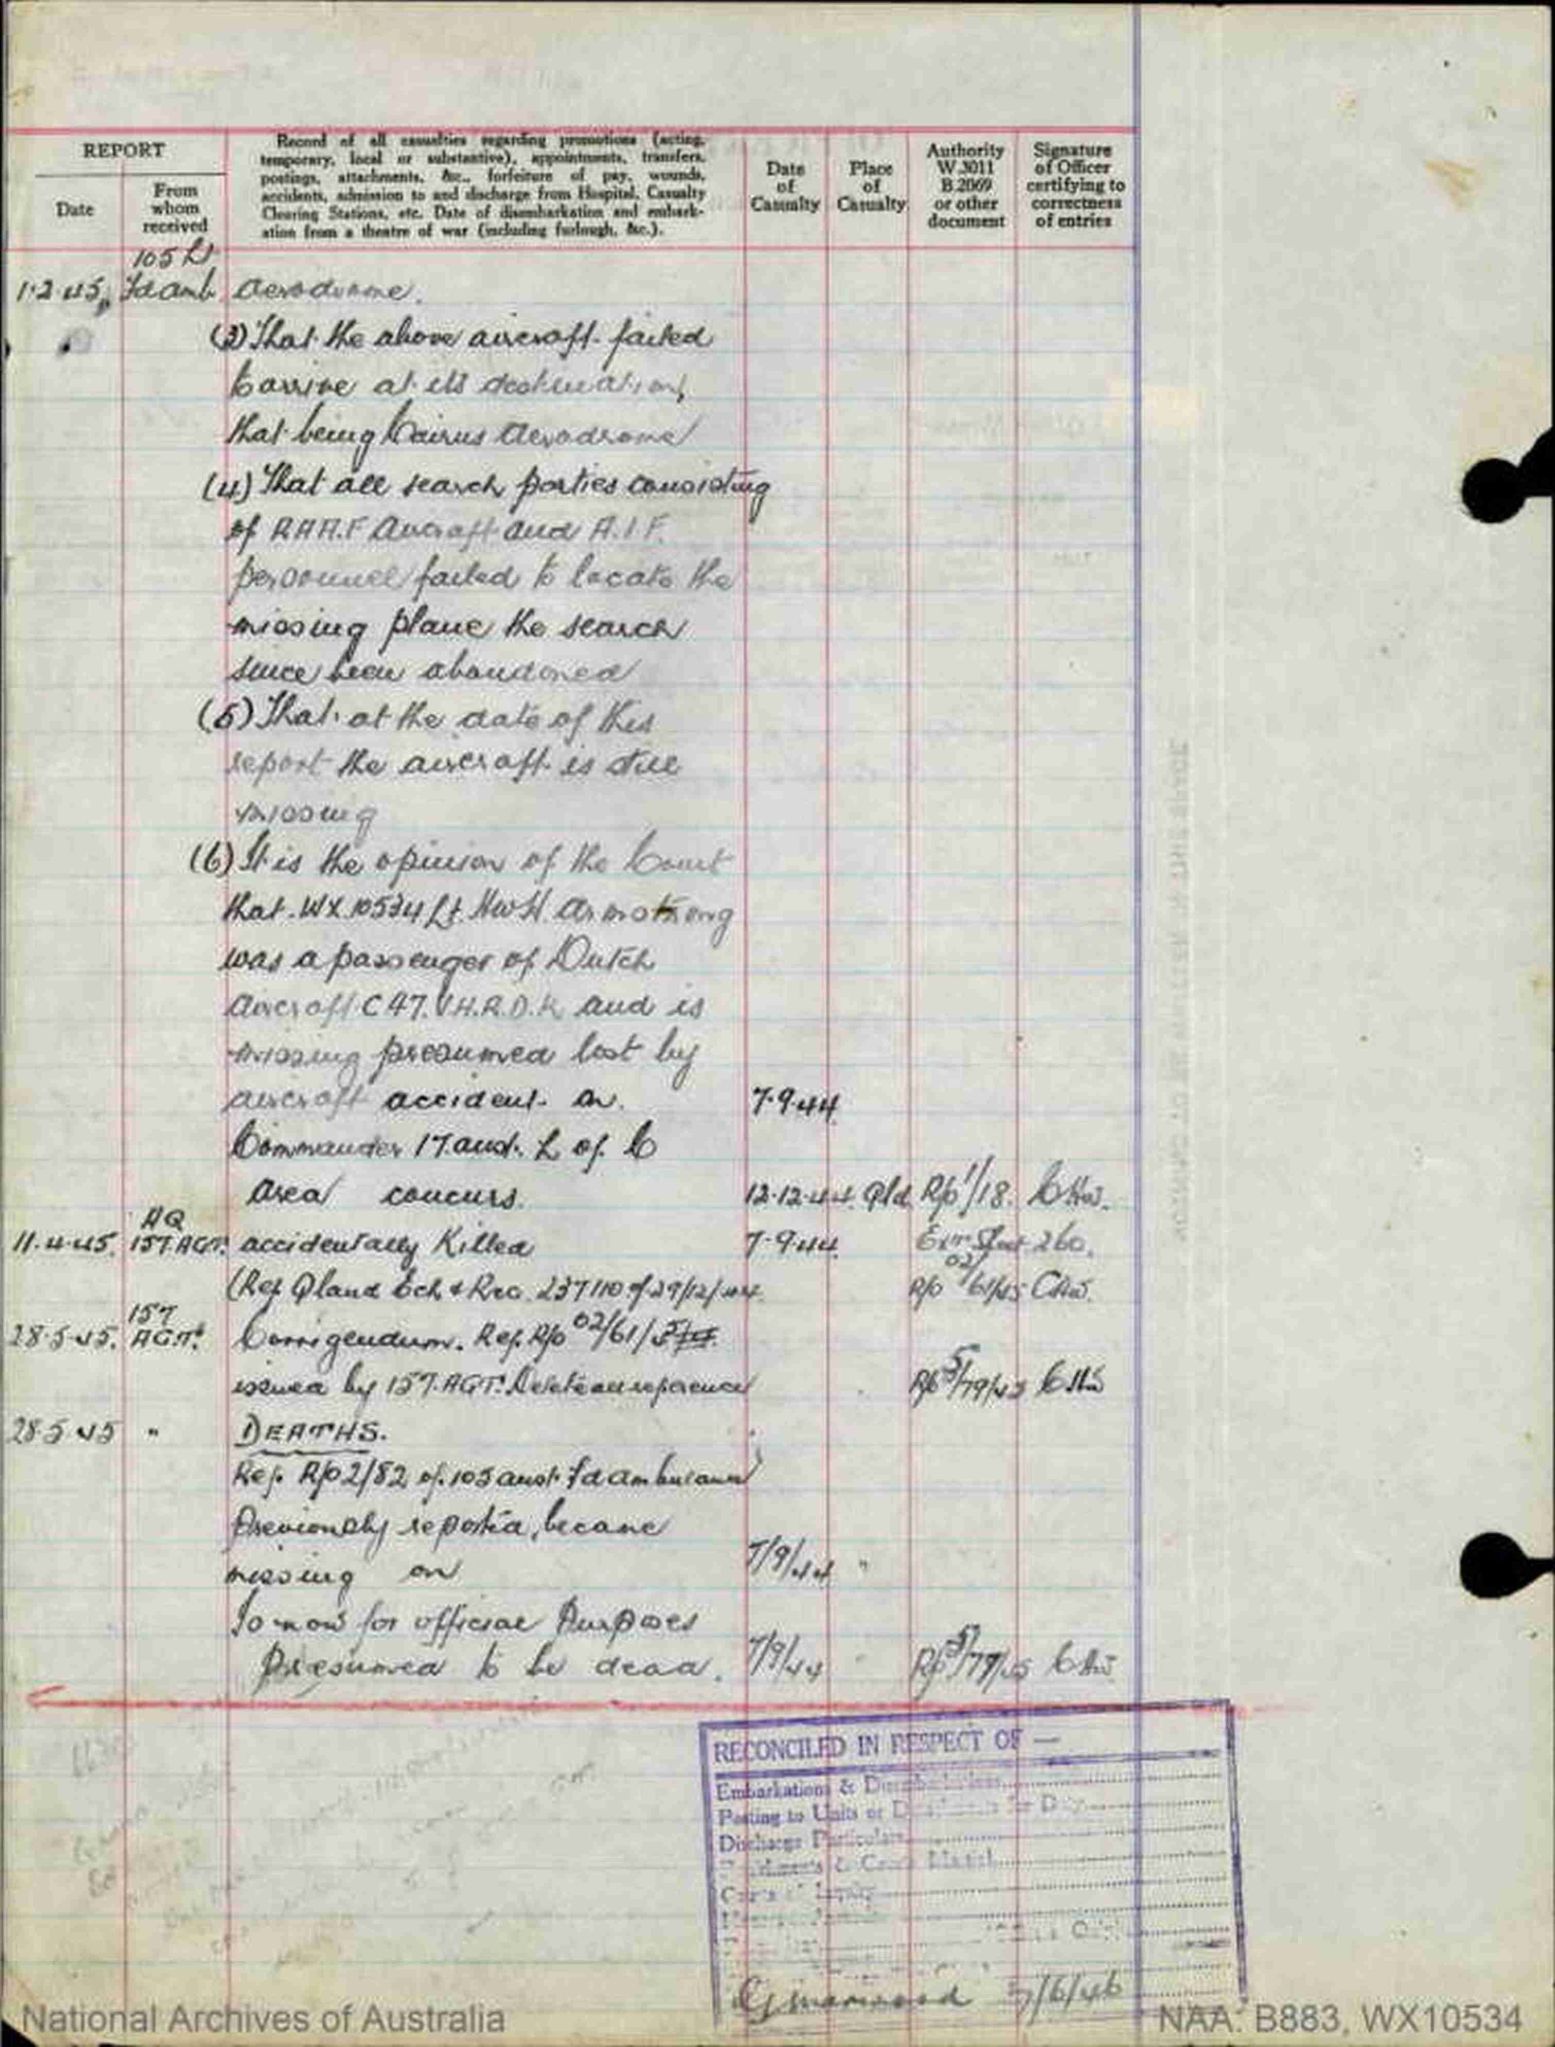 REPORT
Date
From
whom
received
Record of all casualties regarding promotions (acting,
temporary, local or substantive), appointments, transfers,
postings, attachments, &c., forfeiture of pay, wounds,
accidents, admission to and discharge from Hospital, Casualty
Clearing Stations, etc. Date of disembarkation and embark-
ation from a theatre of war (including furlough, &c.).
Date
of
Casualty
Place
of
Casualty
Authority
W.3011
B.2069
or other
document
Signature
of Officer
certifying to
correctness
of entries
105 Lt
1.2.45 Fd amb Aerodrome.
(3) That the above aircraft failed
to arrive at its destination,
that being Cairns Aerodrome
(4) That all search parties consisting
of R.A.A.F Aircraft and A.I.F.
personnel failed to locate the
missing plane the search
since been abandoned
(5) That at the date of this
report the aircraft is still
missing
(6) It is the opinion of the Court
that WX 10534 Lt. H W H Armstrong
was a passenger of Dutch
Aircraft C 47. V.H.R.D.K and is
missing presumed lost by
aircraft accident on 7.9.44
Commander 17. aust. L of C
area concurs. 12.12.44 Qld R/o 1/18.
HQ
11.4.45. 157.AGT. accidentally Killed 7.9.44 260.
(Ref Qland Ech & Rec. 237110 of 29/12/44 R/o 02/61/45
157
28.5.45. AGT. Corrigendum. Ref. R/o 02/61/45
issued by 157.AGT. Delete all reference R/o 5/79/45
28.5.45 " DEATHS.
Ref. R/o 2/82 of 105 aust. Fd ambulance
Previously reported, became
missing on 7/9/44 "
Is now for official Purposes
Presumed to be dead. 7/9/44 " R/o 5/79/45
RECONCILED IN RESPECT OF —
Embarkations & Disembarkations
Posting to Units or for Duty
Discharge Particulars
5/6/46
National Archives of Australia
NAA: B883, WX10534